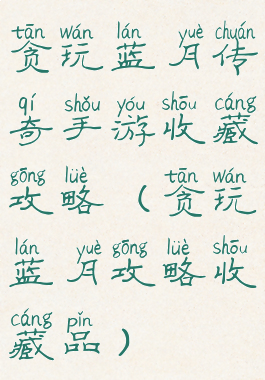 tān wán lán yuè chuán
贪玩蓝月传
qí shǒu yóu shōu cáng
奇手游收藏
gōng lüè tān wán
攻略（贪玩
lán yuè gōng lüè shōu
蓝月攻略收
cáng pǐn
藏品）